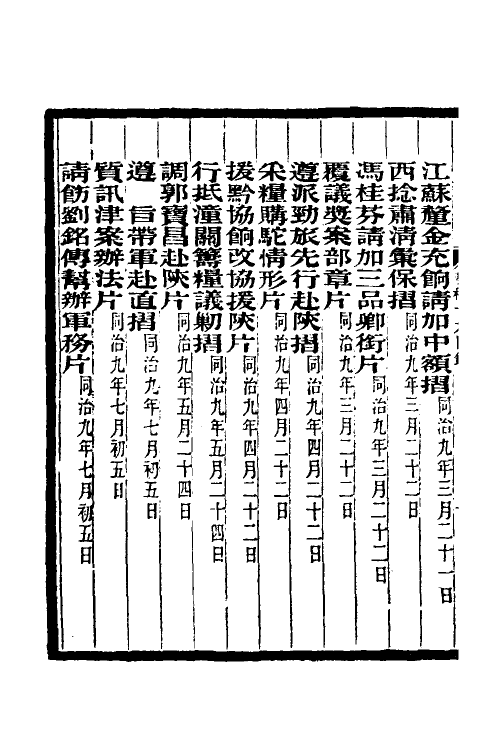 江蘇釐金充餉請加中額摺同治九年三月二十一日
西捻肅清彙保摺同治九年三月二十二日
馮桂芬請加三品卿銜片同治九年三月二十二日
覆議獎案部章片同治九年三月二十二日
遵派勁旅先行赴陝摺同治九年四月二十二日
采糧購駝情形片同治九年四月二十二日
援黔協餉改協援陝片同治九年四月二十二日
行抵潼關籌糧議勦摺同治九年五月二十四日
調郭寶昌赴陝片同治九年五月二十四日
遵 旨帶軍赴直摺同治九年七月初五日
質訊津案辦法片同治九年七月初五日
請飭劉銘傳幫辦軍務片同治九年七月初五日